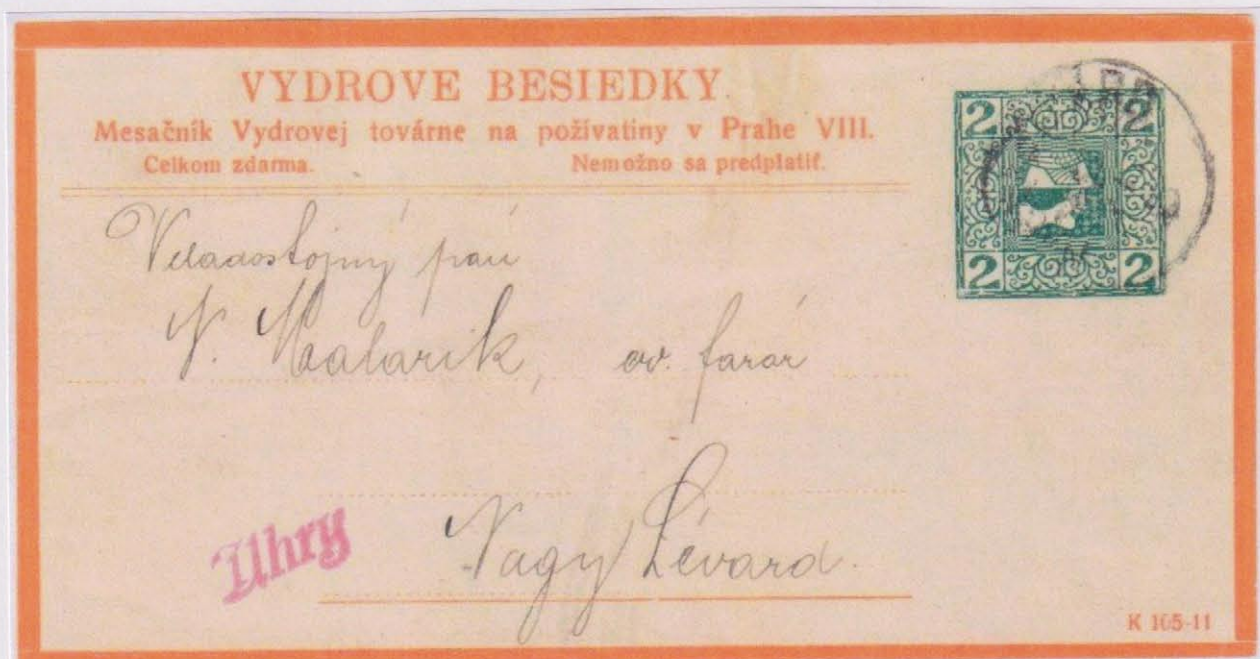 VYDROVE BESIEDKY
Mesačník Vydrovej továrne na požívatiny v Prahe VIII.
Celkom zdarma. Nemožno sa predplatiť.
2 2
2 2
Veladôstojný pán
N. Malarik, ev. farár
Uhry
Nagy Lévard.
K 105-11